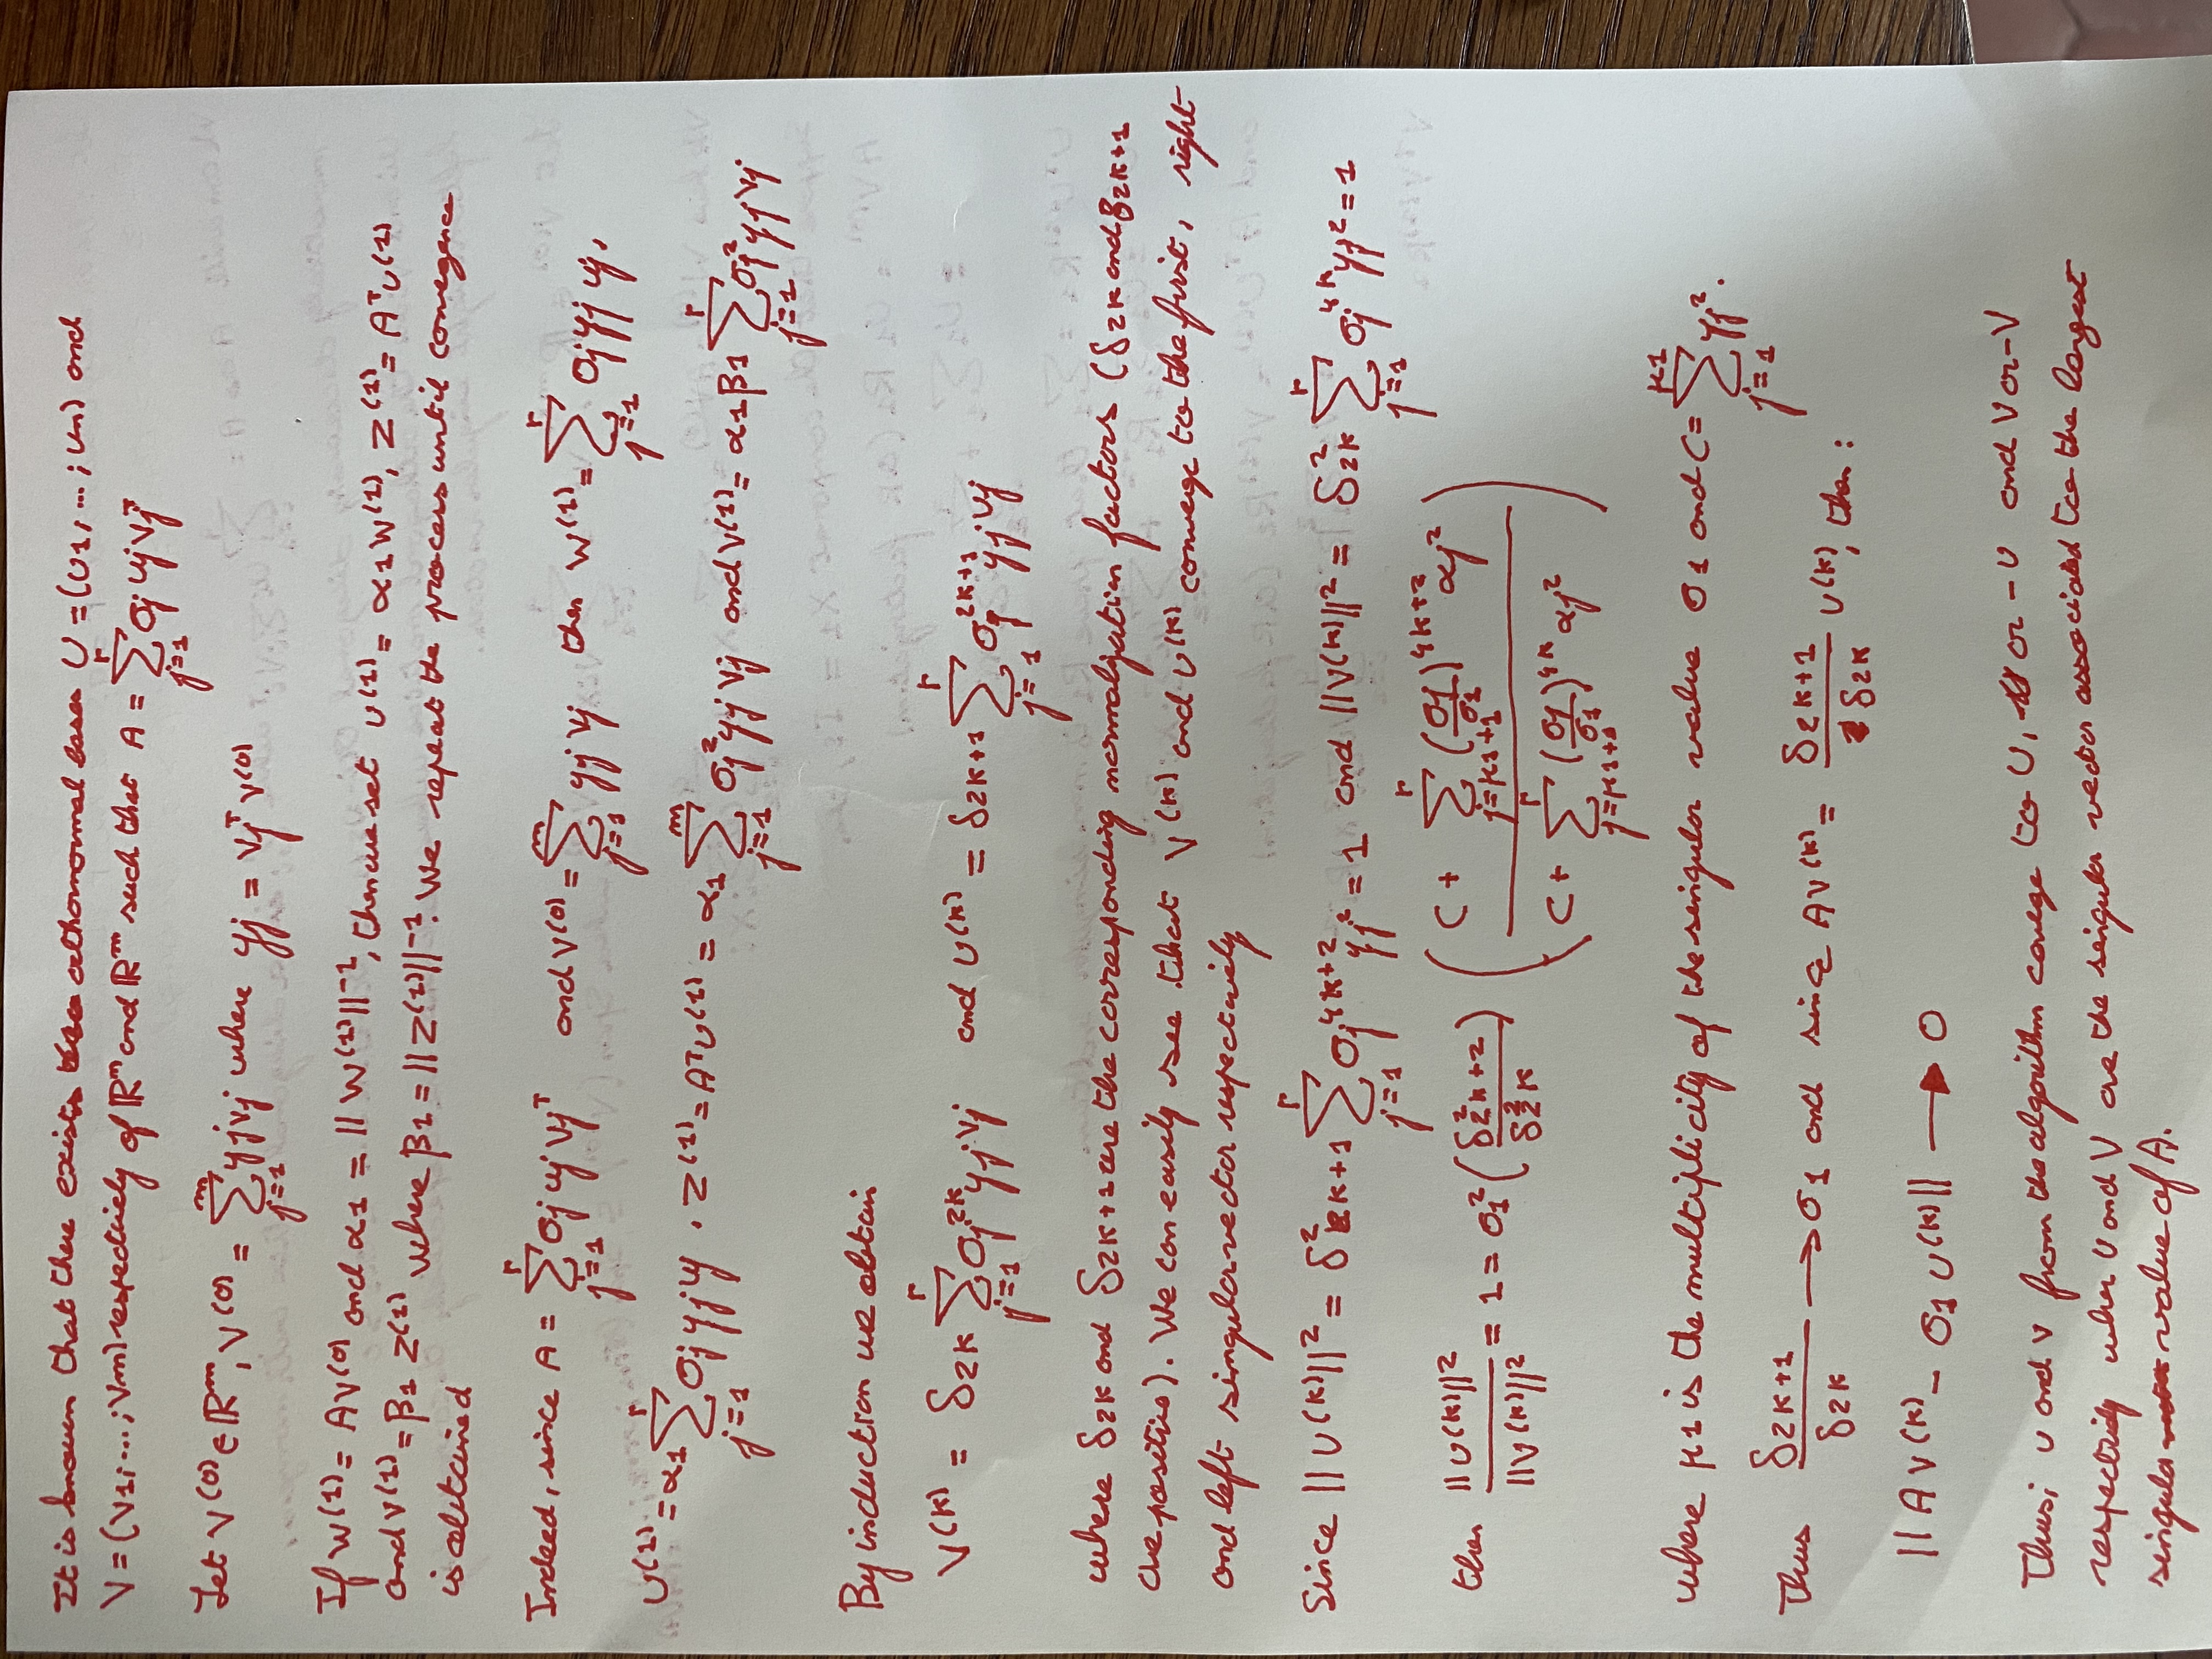 It is known that there exists orthonormal bases U = (u1, ... ; un) and
V = (v1; ... ; vm) respectively of ℝⁿ and ℝᵐ such that A = ∑_{j=1}^{r} σj uj vjᵀ
Let v⁽⁰⁾ ∈ ℝᵐ, v⁽⁰⁾ = ∑_{j=1}^{m} yj vj where yj = vjᵀ v⁽⁰⁾
If w⁽¹⁾ = Av⁽⁰⁾ and α1 = ||w⁽¹⁾||⁻¹, then we set u⁽¹⁾ = α1 w⁽¹⁾, z⁽¹⁾ = Aᵀu⁽¹⁾
and v⁽¹⁾ = β1 z⁽¹⁾ where β1 = ||z⁽¹⁾||⁻¹. We repeat the process until convegence
is obtained
Indeed, since A = ∑_{j=1}^{r} σj uj vjᵀ and v⁽⁰⁾ = ∑_{j=1}^{m} yj vj then w⁽¹⁾ = ∑_{j=1}^{r} σj yj uj,
u⁽¹⁾ = α1 ∑_{j=1}^{r} σj yj uj . z⁽¹⁾ = Aᵀu⁽¹⁾ = α1 ∑_{j=1}^{m} σj² yj vj and v⁽¹⁾ = α1 β1 ∑_{j=1}^{r} σj² yj vj
By induction we obtain
v⁽ᵏ⁾ = δ2k ∑_{j=1}^{r} σj^{2k} yj vj and u⁽ᵏ⁾ = δ2k+1 ∑_{j=1}^{r} σj^{2k+1} yj uj
where δ2k and δ2k+1 are the corresponding normalization factors (δ2k and δ2k+1
are positive). We can easily see that v⁽ᵏ⁾ and u⁽ᵏ⁾ converge to the first, right
and left singular vector respectively
Since ||u⁽ᵏ⁾||² = δ²2k+1 ∑_{j=1}^{r} σj^{4k+2} yj² = 1 and ||v⁽ᵏ⁾||² = δ²2k ∑_{j=1}^{r} σj^{4k} yj² = 1
then ||u⁽ᵏ⁾||² / ||v⁽ᵏ⁾||² = 1 = σ1² (δ²2k+2 / δ²2k) ( (C + ∑_{j=μ1+1}^{r} (σj/σ1)^{4k+2} αj²) / (C + ∑_{j=μ1+1}^{r} (σj/σ1)^{4k} αj²) )
where μ1 is the multiplicity of the singular value σ1 and C = ∑_{j=1}^{μ1} yj².
Thus δ2k+1 / δ2k → σ1 and since Av⁽ᵏ⁾ = (δ2k+1 / δ2k) u⁽ᵏ⁾, then :
||Av⁽ᵏ⁾ - σ1 u⁽ᵏ⁾|| → 0
Thus; u and v from the algorithm convege to U, or -U and V or -V
respectively when U and V are the singular vector associated to the largest
singula value of A.